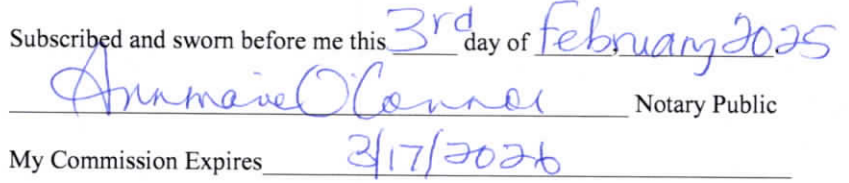 Subscribed and sworn before me this 3rd day of February 2025
Annmarie O'Connor Notary Public
My Commission Expires 3/17/2026